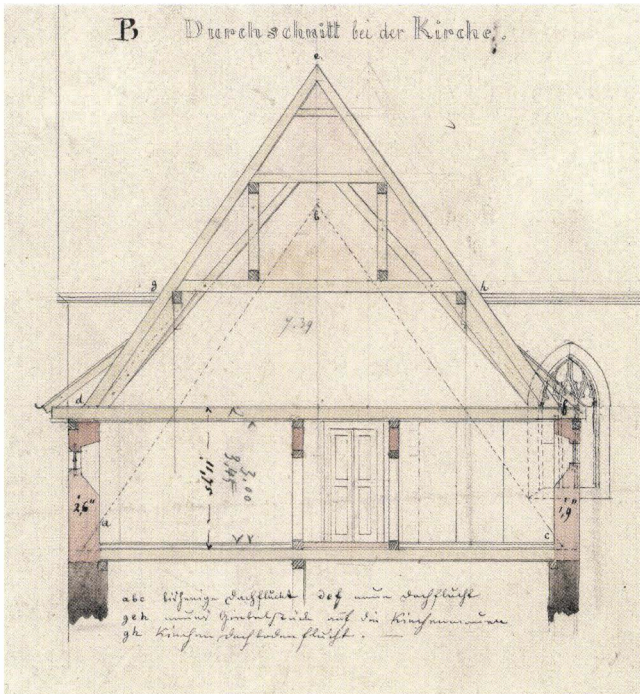 B Durchschnitt bei der Kirche.
e
b
g h
7.39
d f
3,00
3,45
11,75
2,6" 1,9"
a c
abc bisherige Dachflucht def neue Dachflucht
geh neues Giebelstück auf die Kirchenmauer
gh Kirchen Dachbodenflucht.